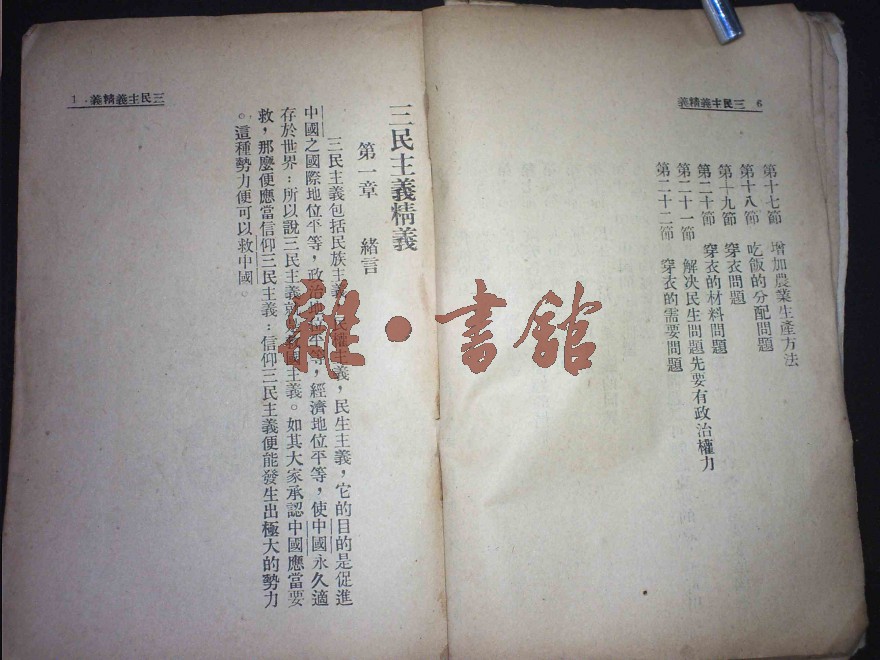 三民主義精義 6
第十七節 增加農業生產方法
第十八節 吃飯的分配問題
第十九節 穿衣問題
第二十節 穿衣的材料問題
第二十一節 解决民生問題先要有政治權力
第二十二節 穿衣的需要問題
三民主義精義 1
三民主義精義
第一章 緒言
三民主義包括民族主義,民權主義,民生主義,它的目的是促進
中國之國際地位平等,政治地位平等,經濟地位平等,使中國永久適
存於世界:所以說三民主義就是救國主義。如其大家承認中國應當要
救,那麼便應當信仰三民主義:信仰三民主義便能發生出極大的勢力
。這種勢力便可以救中國。
雜·書館